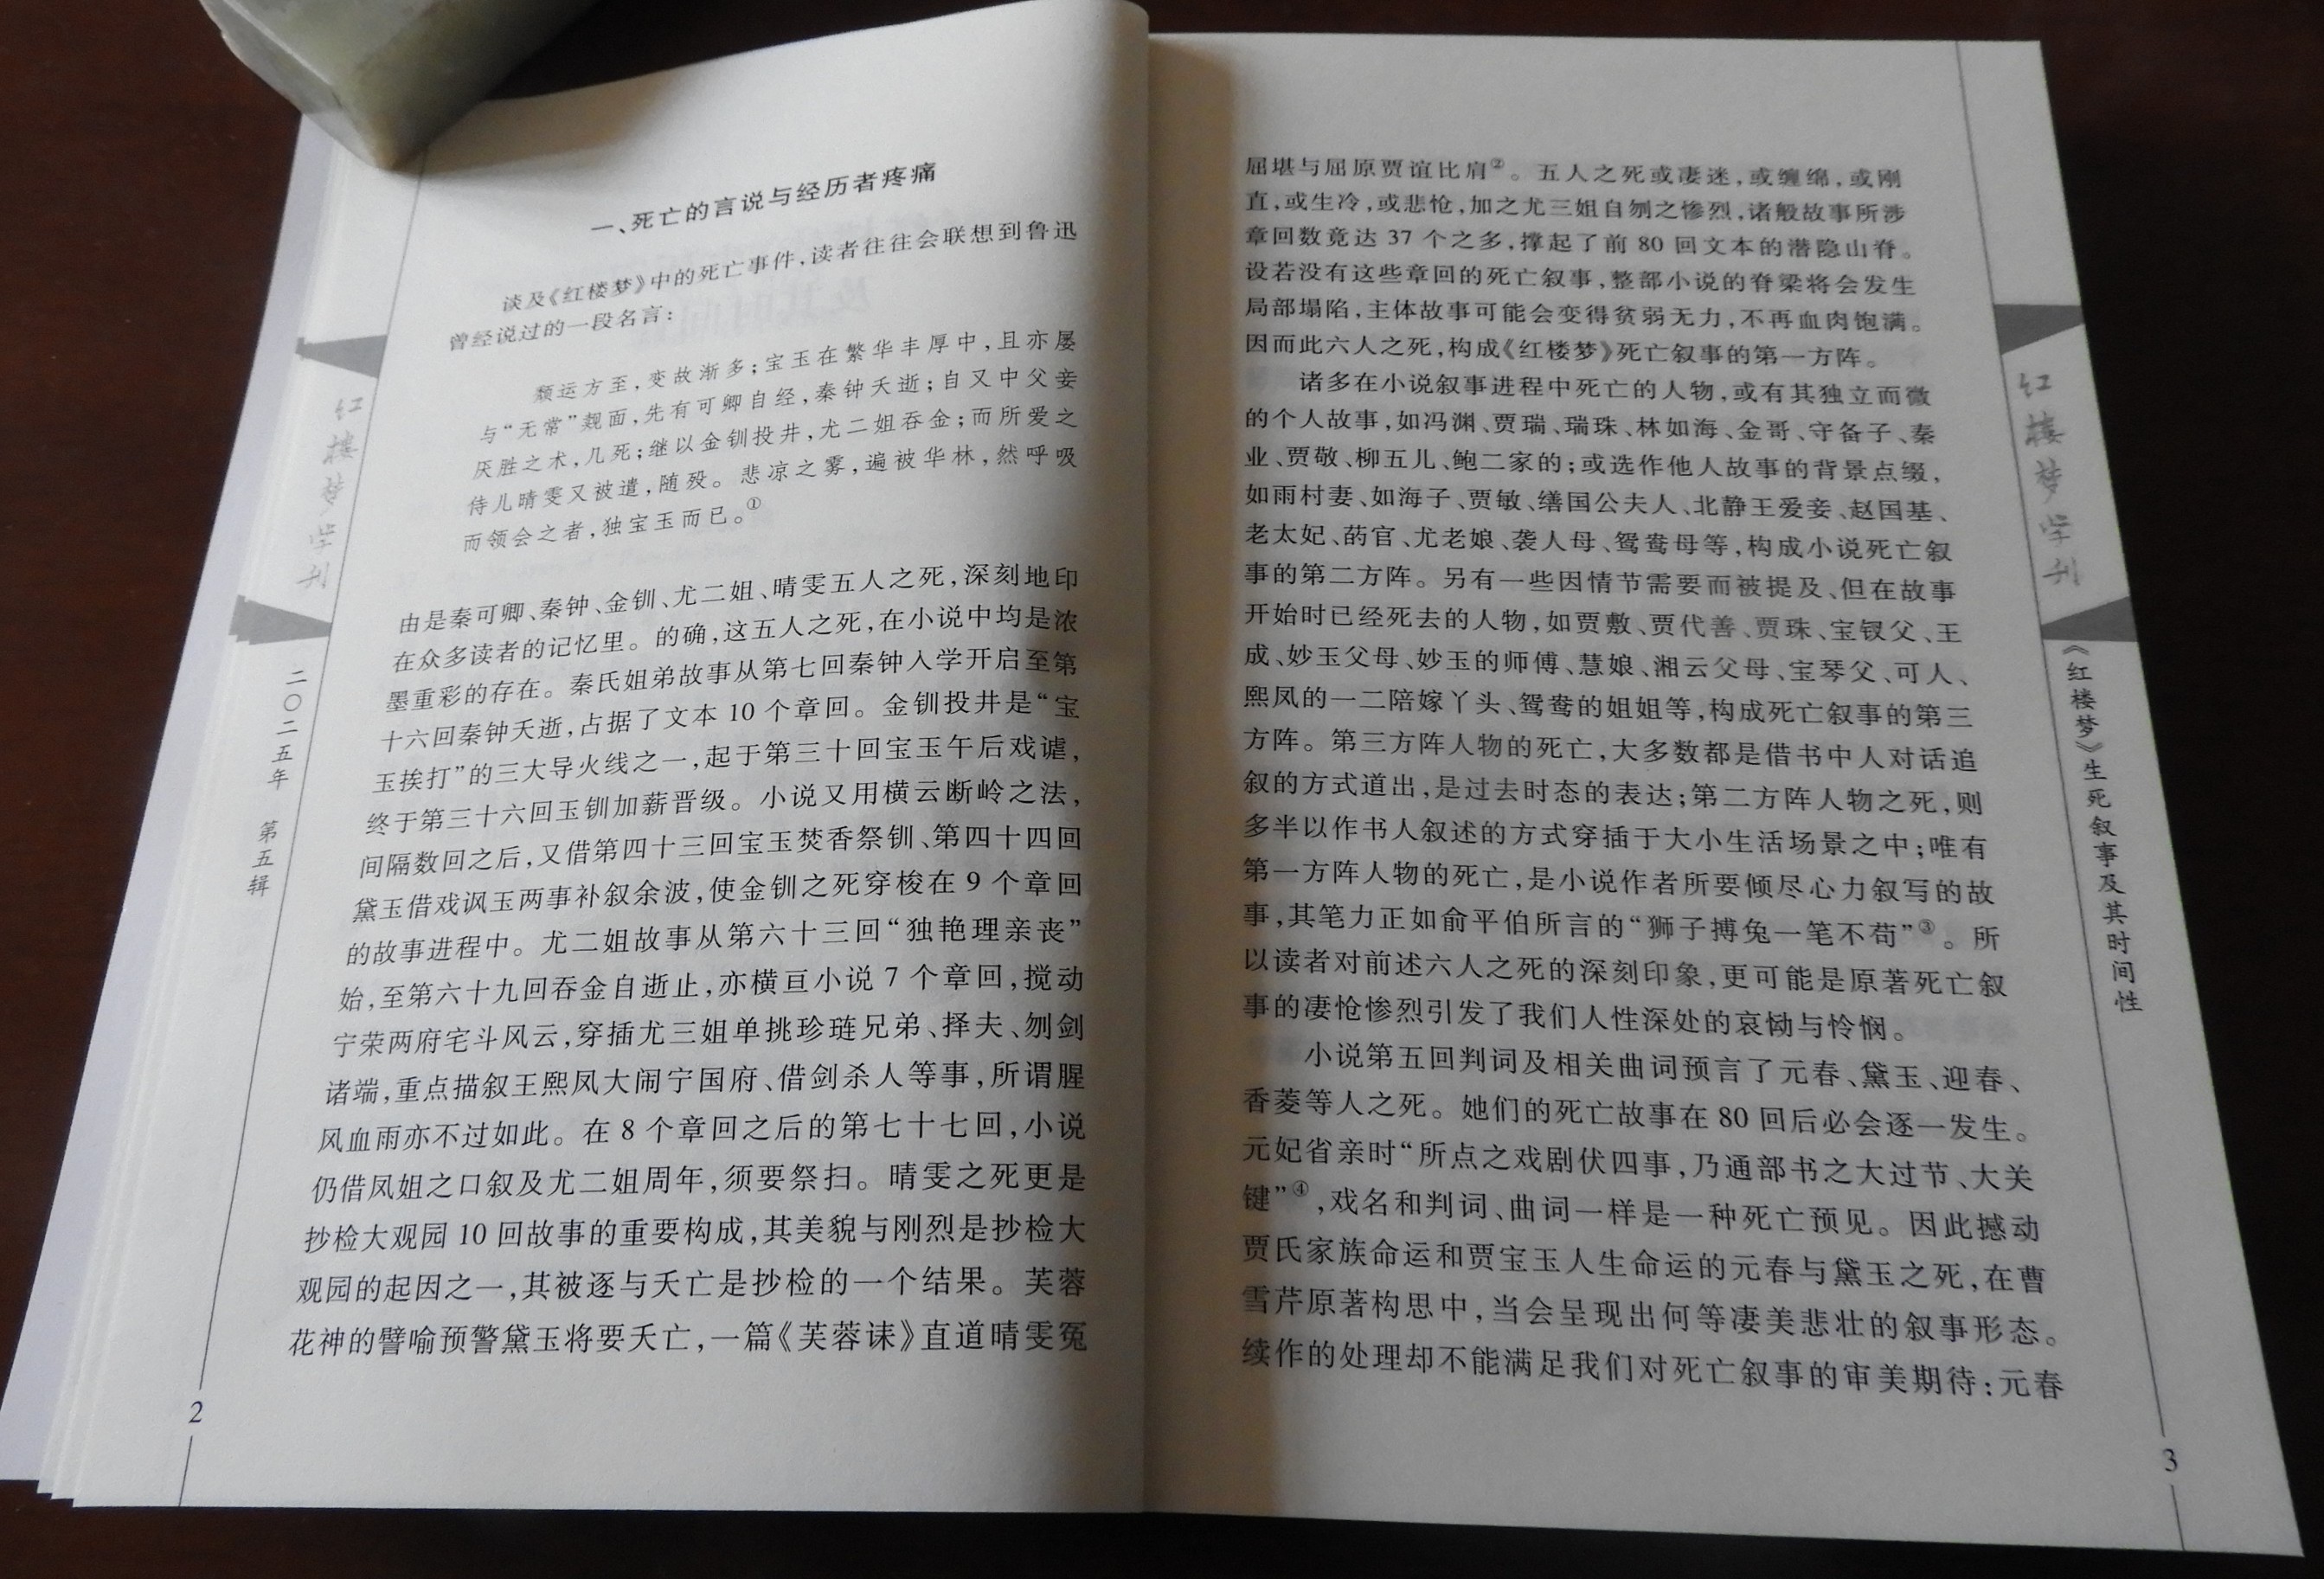 一、死亡的言说与经历者疼痛
谈及《红楼梦》中的死亡事件，读者往往会联想到鲁迅
曾经说过的一段名言：
颓运方至，变故渐多；宝玉在繁华丰厚中，且亦屡
与“无常”觌面，先有可卿自经，秦钟夭逝；自又中父妾
厌胜之术，几死；继以金钏投井，尤二姐吞金；而所爱之
侍儿晴雯又被遣，随殁。悲凉之雾，遍被华林，然呼吸
而领会之者，独宝玉而已。①
由是秦可卿、秦钟、金钏、尤二姐、晴雯五人之死，深刻地印
在众多读者的记忆里。的确，这五人之死，在小说中均是浓
墨重彩的存在。秦氏姐弟故事从第七回秦钟入学开启至第
十六回秦钟夭逝，占据了文本 10 个章回。金钏投井是“宝
玉挨打”的三大导火线之一，起于第三十回宝玉午后戏谑，
终于第三十六回玉钏加薪晋级。小说又用横云断岭之法，
间隔数回之后，又借第四十三回宝玉焚香祭钏、第四十四回
黛玉借戏讽玉两事补叙余波，使金钏之死穿梭在 9 个章回
的故事进程中。尤二姐故事从第六十三回“独艳理亲丧”
始，至第六十九回吞金自逝止，亦横亘小说 7 个章回，搅动
宁荣两府宅斗风云，穿插尤三姐单挑珍琏兄弟、择夫、刎剑
诸端，重点描叙王熙凤大闹宁国府、借剑杀人等事，所谓腥
风血雨亦不过如此。在 8 个章回之后的第七十七回，小说
仍借凤姐之口叙及尤二姐周年，须要祭扫。晴雯之死更是
抄检大观园 10 回故事的重要构成，其美貌与刚烈是抄检大
观园的起因之一，其被逐与夭亡是抄检的一个结果。芙蓉
花神的譬喻预警黛玉将要夭亡，一篇《芙蓉诔》直道晴雯冤
红楼梦学刊
二〇二五年 第五辑
2
屈堪与屈原贾谊比肩②。五人之死或凄迷，或缠绵，或刚
直，或生冷，或悲怆，加之尤三姐自刎之惨烈，诸般故事所涉
章回数竟达 37 个之多，撑起了前 80 回文本的潜隐山脊。
设若没有这些章回的死亡叙事，整部小说的脊梁将会发生
局部塌陷，主体故事可能会变得贫弱无力，不再血肉饱满。
因而此六人之死，构成《红楼梦》死亡叙事的第一方阵。
诸多在小说叙事进程中死亡的人物，或有其独立而微
的个人故事，如冯渊、贾瑞、瑞珠、林如海、金哥、守备子、秦
业、贾敬、柳五儿、鲍二家的；或选作他人故事的背景点缀，
如雨村妻、如海子、贾敏、缮国公夫人、北静王爱妾、赵国基、
老太妃、药官、尤老娘、袭人母、鸳鸯母等，构成小说死亡叙
事的第二方阵。另有一些因情节需要而被提及、但在故事
开始时已经死去的人物，如贾敷、贾代善、贾珠、宝钗父、王
成、妙玉父母、妙玉的师傅、慧娘、湘云父母、宝琴父、可人、
熙凤的一二陪嫁丫头、鸳鸯的姐姐等，构成死亡叙事的第三
方阵。第三方阵人物的死亡，大多数都是借书中人对话追
叙的方式道出，是过去时态的表达；第二方阵人物之死，则
多半以作书人叙述的方式穿插于大小生活场景之中；唯有
第一方阵人物的死亡，是小说作者所要倾尽心力叙写的故
事，其笔力正如俞平伯所言的“狮子搏兔一笔不苟”③。所
以读者对前述六人之死的深刻印象，更可能是原著死亡叙
事的凄怆惨烈引发了我们人性深处的哀恸与怜悯。
小说第五回判词及相关曲词预言了元春、黛玉、迎春、
香菱等人之死。她们的死亡故事在 80 回后必会逐一发生。
元妃省亲时“所点之戏剧伏四事，乃通部书之大过节、大关
键”④，戏名和判词、曲词一样是一种死亡预见。因此撼动
贾氏家族命运和贾宝玉人生命运的元春与黛玉之死，在曹
雪芹原著构思中，当会呈现出何等凄美悲壮的叙事形态。
续作的处理却不能满足我们对死亡叙事的审美期待：元春
红楼梦学刊
《红楼梦》生死叙事及其时间性
3